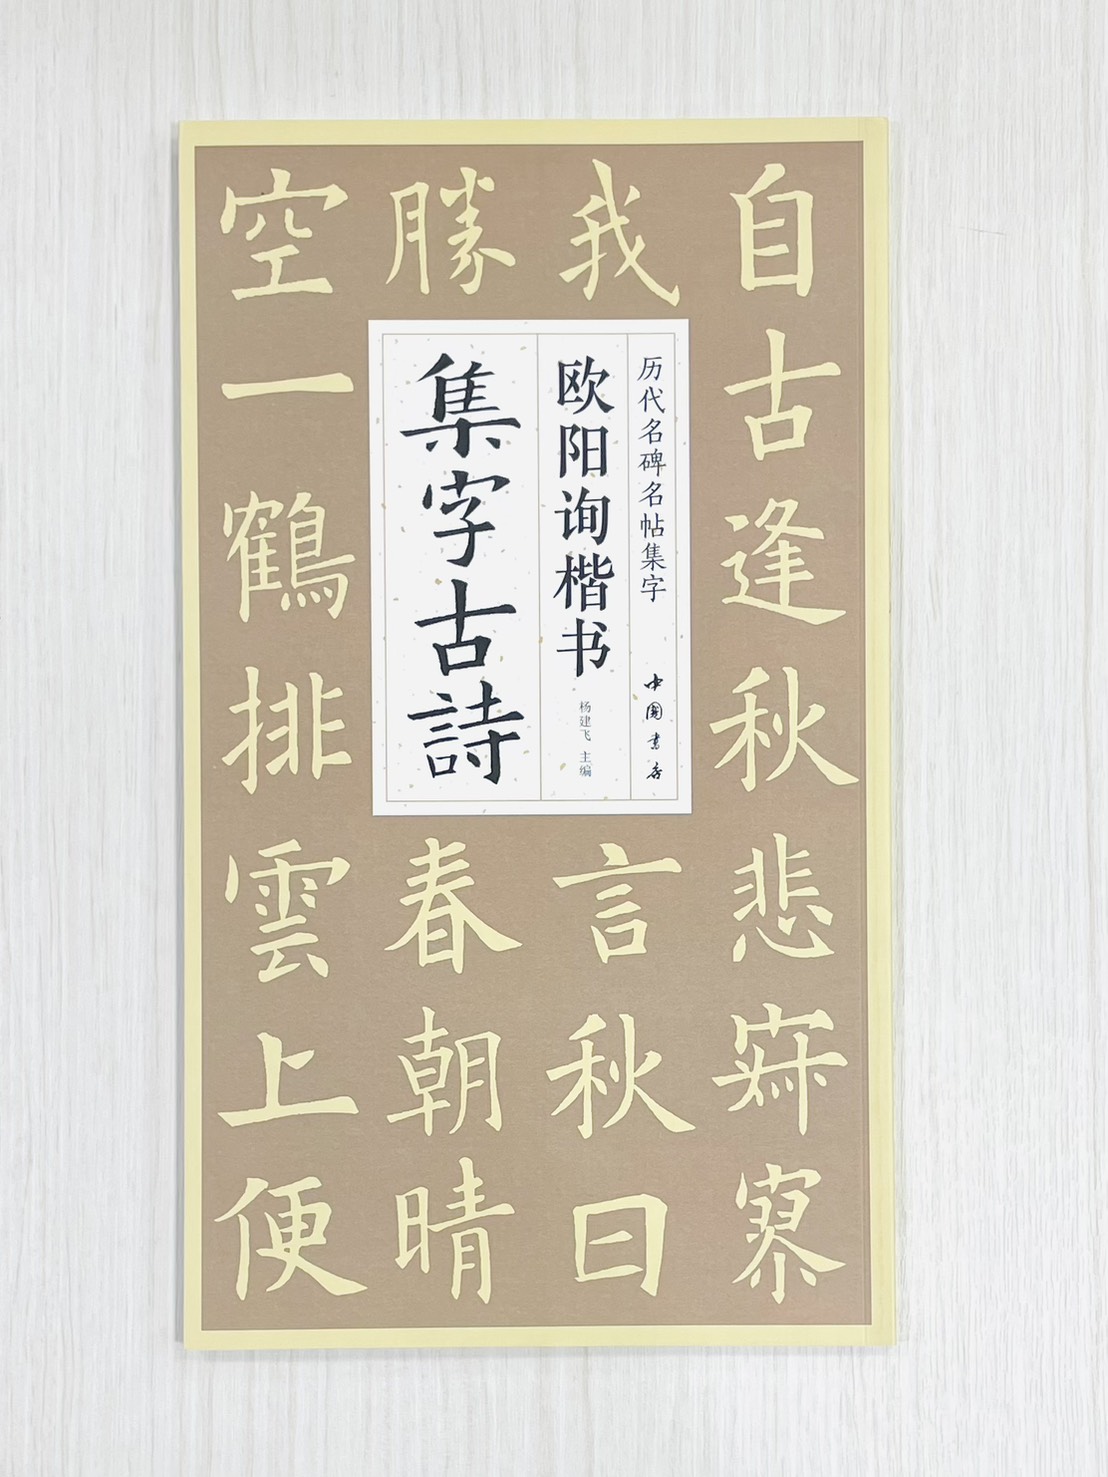 自古逢秋悲寂寥
我言秋日
勝春朝晴
空一鶴排雲上便
历代名碑名帖集字 中國書店
欧阳询楷书 杨建飞 主编
集字古詩